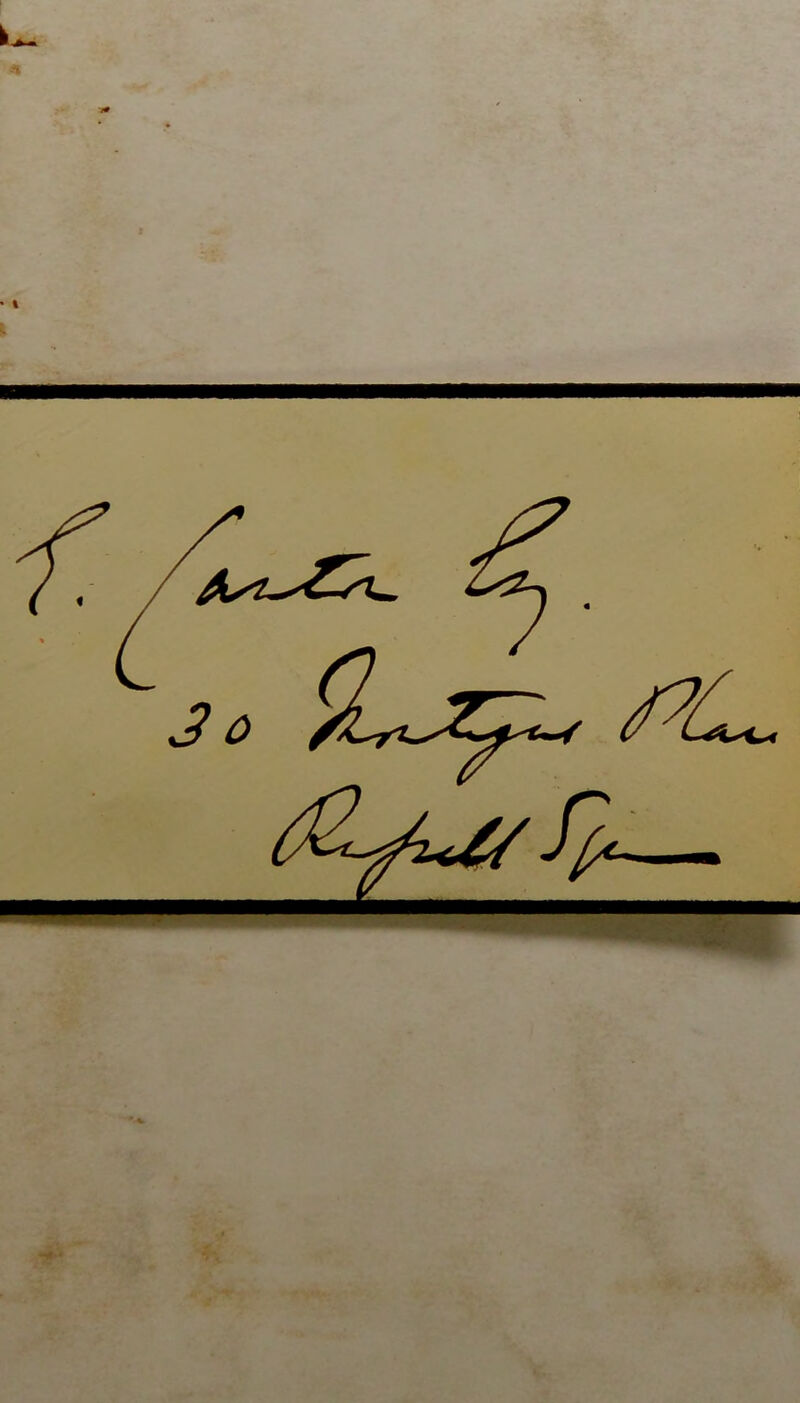 T. Carter Esq.
30 Montague Place
Russell Sqre